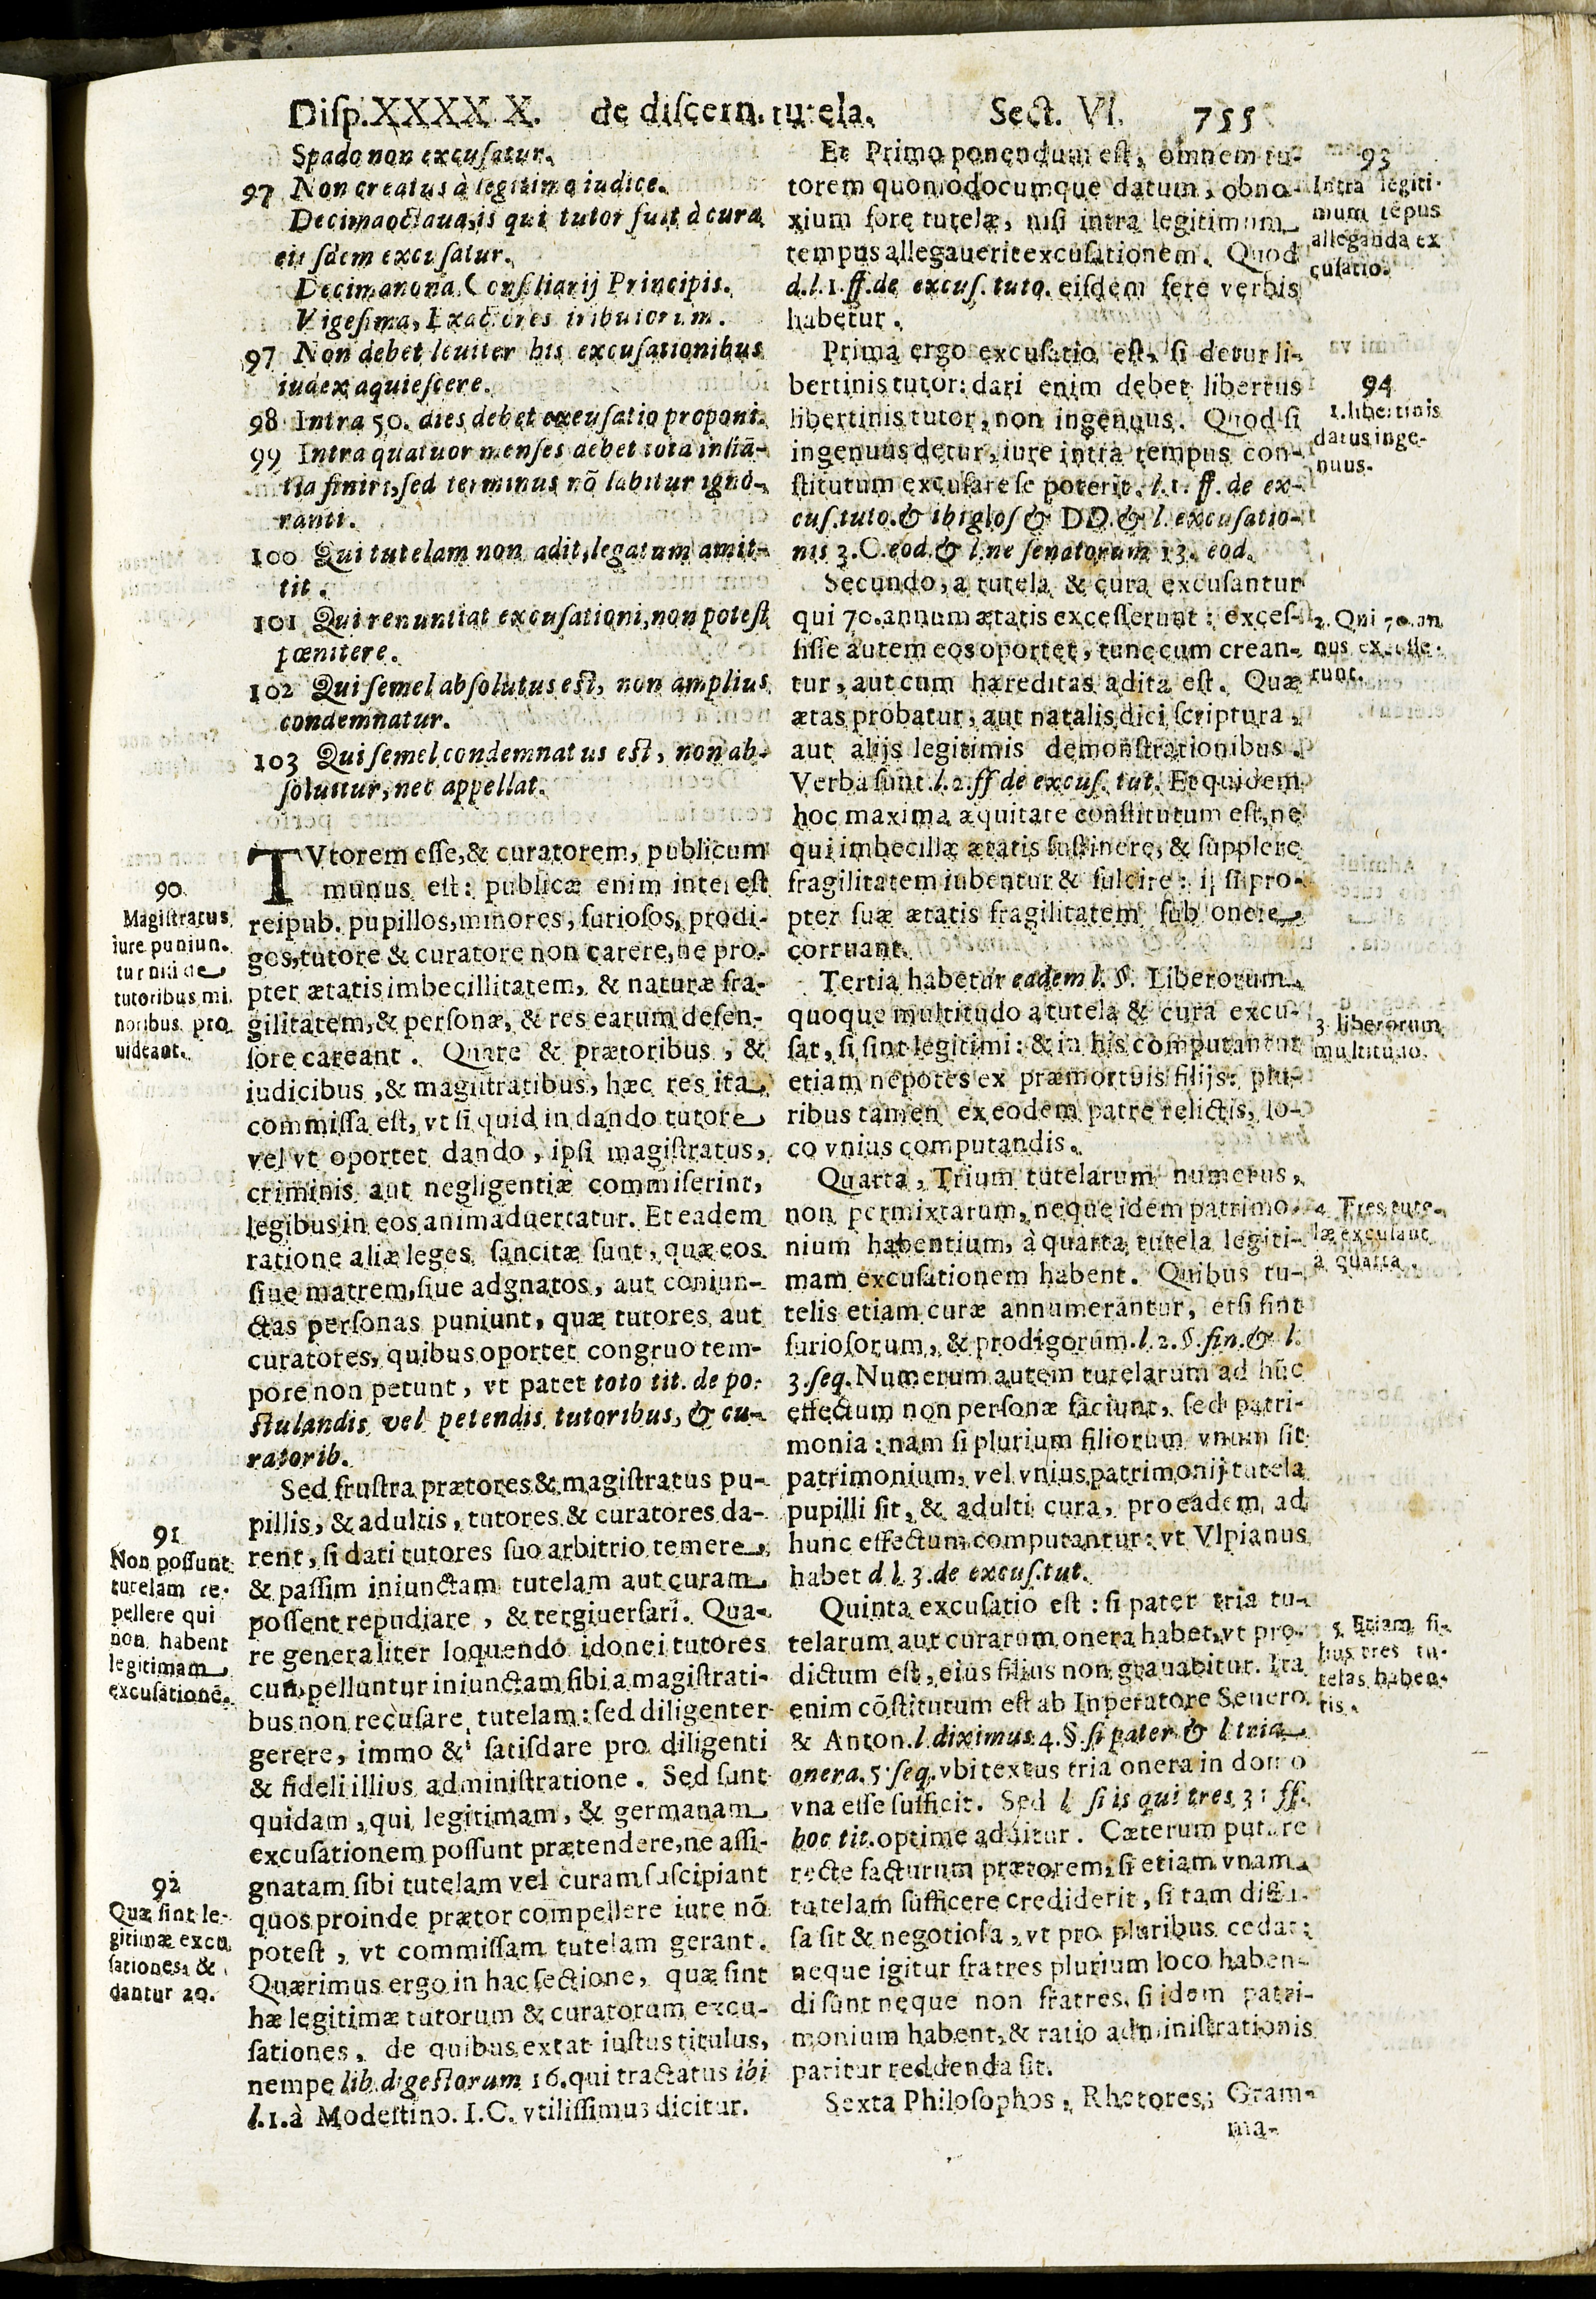 Diſp.XXXX X. de diſcern. tutela. Sect. VI. 755
Spado non excuſatur.
97 Non creatus à legitimo iudice.
Decimaoctaua, is qui tutor fuit à cura
eiuſdem excuſatur.
Decimanona, Conſiliarij Principis.
Vigeſima, Exactores tributorum.
97 Non debet leuiter his excuſationibus
iudex aquieſcere.
98 Intra 50. dies debet excuſatio proponi.
99 Intra quatuor menſes debet tota inſtã-
tia finiri, ſed terminus nõ labitur igno-
ranti.
100 Qui tutelam non adit, legatum amit-
tit.
101 Qui renuntiat excuſationi, non poteſt
pœnitere.
102 Qui ſemel abſolutus eſt, non amplius
condemnatur.
103 Qui ſemel condemnatus eſt, non ab-
ſoluitur, nec appellat.
TVtorem eſſe, & curatorem, publicum
munus eſt: publicæ enim intereſt
reipub. pupillos, minores, furioſos, prodi-
gos, tutore & curatore non carere, ne pro-
pter ætatis imbecillitatem, & naturæ fra-
gilitatem, & perſonæ, & res earum defen-
ſore careant. Quare & prætoribus, &
iudicibus, & magiſtratibus, hæc res ita
commiſſa eſt, vt ſi quid in dando tutore
vel vt oportet dando, ipſi magiſtratus,
criminis aut negligentiæ commiſerint,
legibus in eos animaduertatur. Et eadem
ratione aliæ leges ſancitæ ſunt, quæ eos
ſiue matrem, ſiue adgnatos, aut coniun-
ctas perſonas puniunt, quæ tutores aut
curatores, quibus oportet congruo tem-
pore non petunt, vt patet toto tit. de po-
ſtulandis vel petendis tutoribus, & cu-
ratorib.
Sed fruſtra prætores & magiſtratus pu-
pillis, & adultis, tutores & curatores da-
rent, ſi dati tutores ſuo arbitrio temere,
& paſſim iniunctam tutelam aut curam
poſſent repudiare, & tergiuerſari. Qua-
re generaliter loquendo idonei tutores
cumpelluntur iniunctam ſibi a magiſtrati-
bus non recuſare tutelam: ſed diligenter
gerere, immo & ſatiſdare pro diligenti
& fideli illius adminiſtratione. Sed ſunt
quidam, qui legitimam, & germanam
excuſationem poſſunt prætendere, ne aſſi-
gnatam ſibi tutelam vel curam ſuſcipiant
quos proinde prætor compellere iure nõ
poteſt, vt commiſſam tutelam gerant.
Quærimus ergo in hac ſectione, quæ ſint
hæ legitimæ tutorum & curatorum excu-
ſationes, de quibus extat iuſtus titulus,
nempe lib. digeſtorum 16. qui tractatus ibi
l.1. à Modeſtino. I.C. vtiliſſimus dicitur.
90
Magiſtratus
iure puniun-
tur niſi de
tutoribus mi-
noribus pro
uideant.
91
Non poſſunt
tutelam re-
pellere qui
non habent
legitimam
excuſationẽ.
92
Quæ ſint le-
gitimæ excu
ſationes, &
dantur 20.
Et Primo ponendum eſt, omnem tu-
torem quomodocumque datum, obno-
xium fore tutelæ, niſi intra legitimum
tempus allegauerit excuſationem. Quod
d.l.1.ff.de excuſ. tuto. eiſdem fere verbis
habetur.
Prima ergo excuſatio eſt, ſi detur li-
bertinis tutor: dari enim debet libertus
libertinis tutor, non ingenuus. Quod ſi
ingenuus detur, iure intra tempus con-
ſtitutum excuſare ſe poterit. l.1. ff. de ex-
cuſ.tuto. & ibi gloſ & DD. & l. excuſatio-
nis 3.C.eod. & l.ne ſenatorum 13. eod.
Secundo, a tutela & cura excuſantur
qui 70. annum ætatis exceſſerunt: exceſ-
ſiſſe autem eos oportet, tunc cum crean-
tur, aut cum hæreditas adita eſt. Quæ
ætas probatur, aut natalis dici ſcriptura,
aut alijs legitimis demonſtrationibus.
Verba ſunt l.2.ff de excuſ. tut. Et quidem
hoc maxima æquitate conſtitutum eſt, ne
qui imbecillæ ætatis ſuſtinere, & ſupplere
fragilitatem iubentur & fulcire: ij ſi pro-
pter ſuæ ætatis fragilitatem ſub onere
corruant.
Tertia habetur eadem l. §. Liberorum
quoque multitudo a tutela & cura excu-
ſat, ſi ſint legitimi: & in his computantur
etiam nepotes ex præmortuis filijs: plu-
ribus tamen ex eodem patre relictis, lo-
co vnius computandis.
Quarta, Trium tutelarum numerus,
non permixtarum, neque idem patrimo-
nium habentium, à quarta tutela legiti-
mam excuſationem habent. Quibus tu-
telis etiam curæ annumerantur, etſi ſint
furioſorum, & prodigorum. l.2.§.fin. & l.
3.ſeq. Numerum autem tutelarum ad hũc
effectum non perſonæ faciunt, ſed patri-
monia: nam ſi plurium filiorum vnum ſit
patrimonium, vel vnius patrimonij tutela
pupilli ſit, & adulti cura, pro eadem ad
hunc effectum computantur: vt Vlpianus
habet d.l.3.de excuſ.tut.
Quinta excuſatio eſt: ſi pater tria tu-
telarum aut curarum onera habet, vt pro-
dictum eſt, eius filius non grauabitur. Ita
enim cõſtitutum eſt ab Inperatore Seuero
& Anton. l.diximus 4.§.ſi pater & l tria
onera.5.ſeq. vbi textus tria onera in domo
vna eſſe ſufficit. Sed l. ſi is qui tres 3: ff.
hoc tit. optime additur. Cæterum putare
recte facturum prætorem, ſi etiam vnam
tutelam ſufficere crediderit, ſi tam diffu-
ſa ſit & negotioſa, vt pro pluribus cedat:
neque igitur fratres plurium loco haben-
di ſunt neque non fratres, ſi idem patri-
monium habent, & ratio adminiſtrationis
paritur reddenda ſit.
Sexta Philoſophos, Rhetores, Gram-
ma-
93
Intra legiti-
mum tẽpus
alleganda ex
cuſatio.
94
1. libertinis
datus inge-
nuus.
2. Qui 70. an
nos exceſſe-
runt.
3 liberorum
multitudo.
4. Tres tute-
læ excuſant
a quarta.
5. Etiam fi-
lius tres tu-
telas haben-
tis.